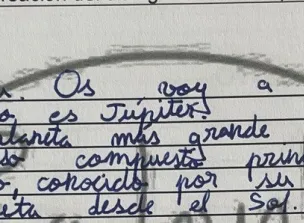 Os voy a
es Júpiter.
planeta más grande
compuesto prin
, conocido por su
desde el Sol.